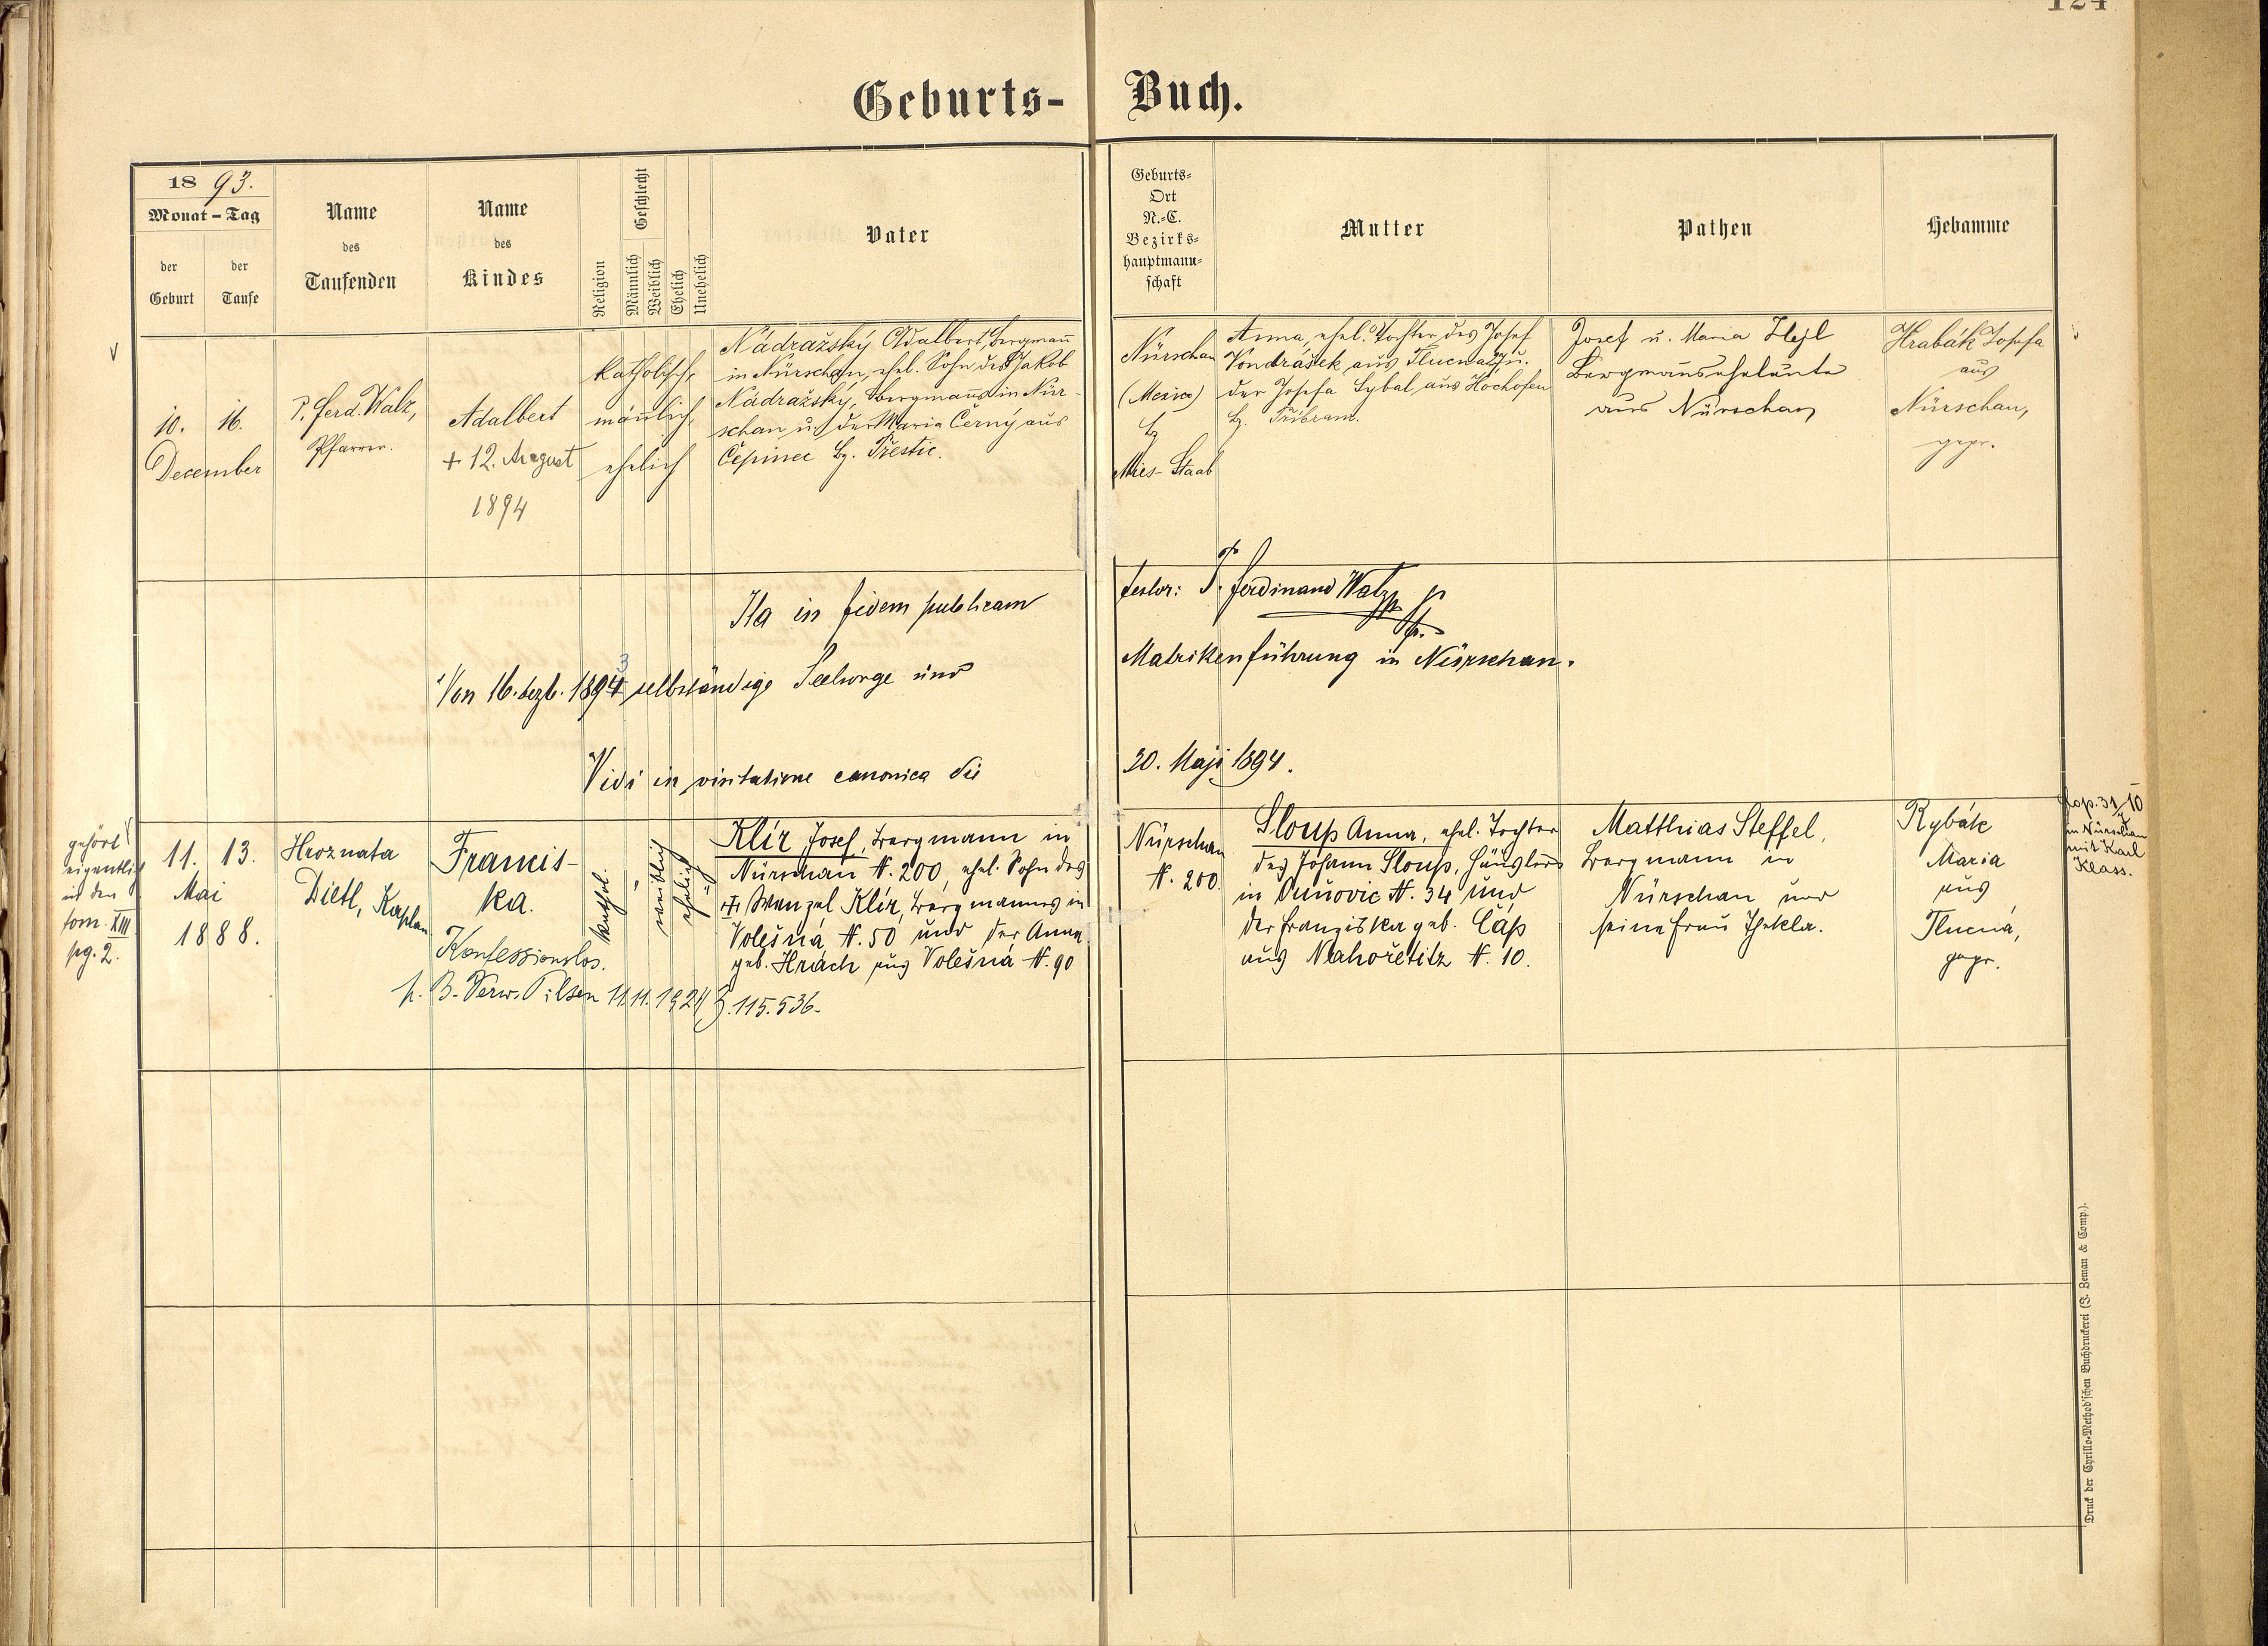 124
Geburts-Buch.
1893.
Monat-Tag
der Geburt
der Taufe
Name des Taufenden
Name des Kindes
Religion
Geschlecht
Männlich
Weiblich
Ehelich
Unehelich
Vater
Geburts-
Ort
N.-C.
Bezirks-
hauptmann-
schaft
Mutter
Pathen
Hebamme
10. 16.
December
P. Ferd. Walz,
Pfarrer.
Adalbert
+ 12. August
1894
katholisch,
mäñlich,
ehelich
Nádražský Adalbert, Bergmañ
in Nürschan, ehel. Sohn des Jakob
Nádražský, Bergmañs in Nür-
schan u. der Maria Černý aus
Čepinec Bz. Přestic.
Nürschan
(Mexico)
Bz
Mies-Staab
Anna, ehel. Tochter des Josef
Vondrášek aus Tlucna u.
der Josefa Sybal aus Hochofen
Bz. Přibram.
Josef u. Maria Hejl
Bergmañseheleute
aus Nürschan
Hrabák Josefa
aus
Nürschan,
gepr.
Ita in fidem publicam testor: P. Ferdinand Walz
Von 16. dezb. 1894 3 selbständige Seelsorge und Matrikenführung in Nürschan.
Vidi in visitatione canonica die 20. Maji 1894.
gehört
eigentlich
in den
tom. XIII
pg. 2.
11. 13.
Mai
1888.
Hroznata
Dietl, Kaplan
Francis-
ka.
Konfessionslos.
p. B. Verw. Pilsen 11. 11. 1924 Z. 115.536.
kathol.
weiblich
ehelich
Klír Josef, Bergmann in
Nürschan N. 200, ehel. Sohn des
+ Wenzel Klír, Bergmannes in
Volešná N. 50 und der Anna
geb. Hrách aus Volešná N. 90
Nürschan
N. 200.
Sloup Anna, ehel. Tochter
des Johann Sloup, Häuslers
in Vunovic N. 34 und
der Franziska geb. Čáp
aus Nahořetitz N. 10.
Matthias Steffel,
Bergmann in
Nürschan und
seine Frau Thekla.
Rybák
Maria
aus
Tlucná,
gepr.
Cop. 31/10
in Nürschan
mit Karl
Klass.
Druck der Cyrillo-Method'schen Buchdruckerei (J. Zeman & Comp.).